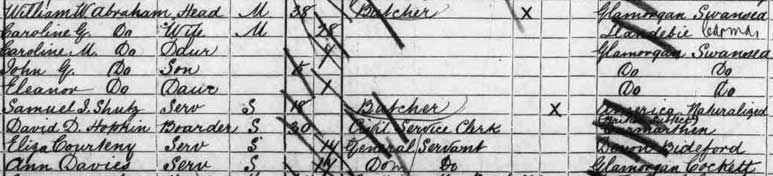 William W Abraham Head M 38 Butcher X Glamorgan Swansea
Caroline G. Do Wife M 28 Llandebie Carmar
Caroline M. Do Daur Glamorgan Swansea
John G. Do Son Do Do
Eleanor Do Daur Do Do
Samuel J. Shutz Serv S 18 Butcher X America Naturalized
David D. Hopkin Boarder S 30 Civil Service Clerk Carmarthen
Eliza Courteny Serv S 14 General Servant Devon Bideford
Ann Davies Serv S 14 Dom Do Glamorgan Cockett